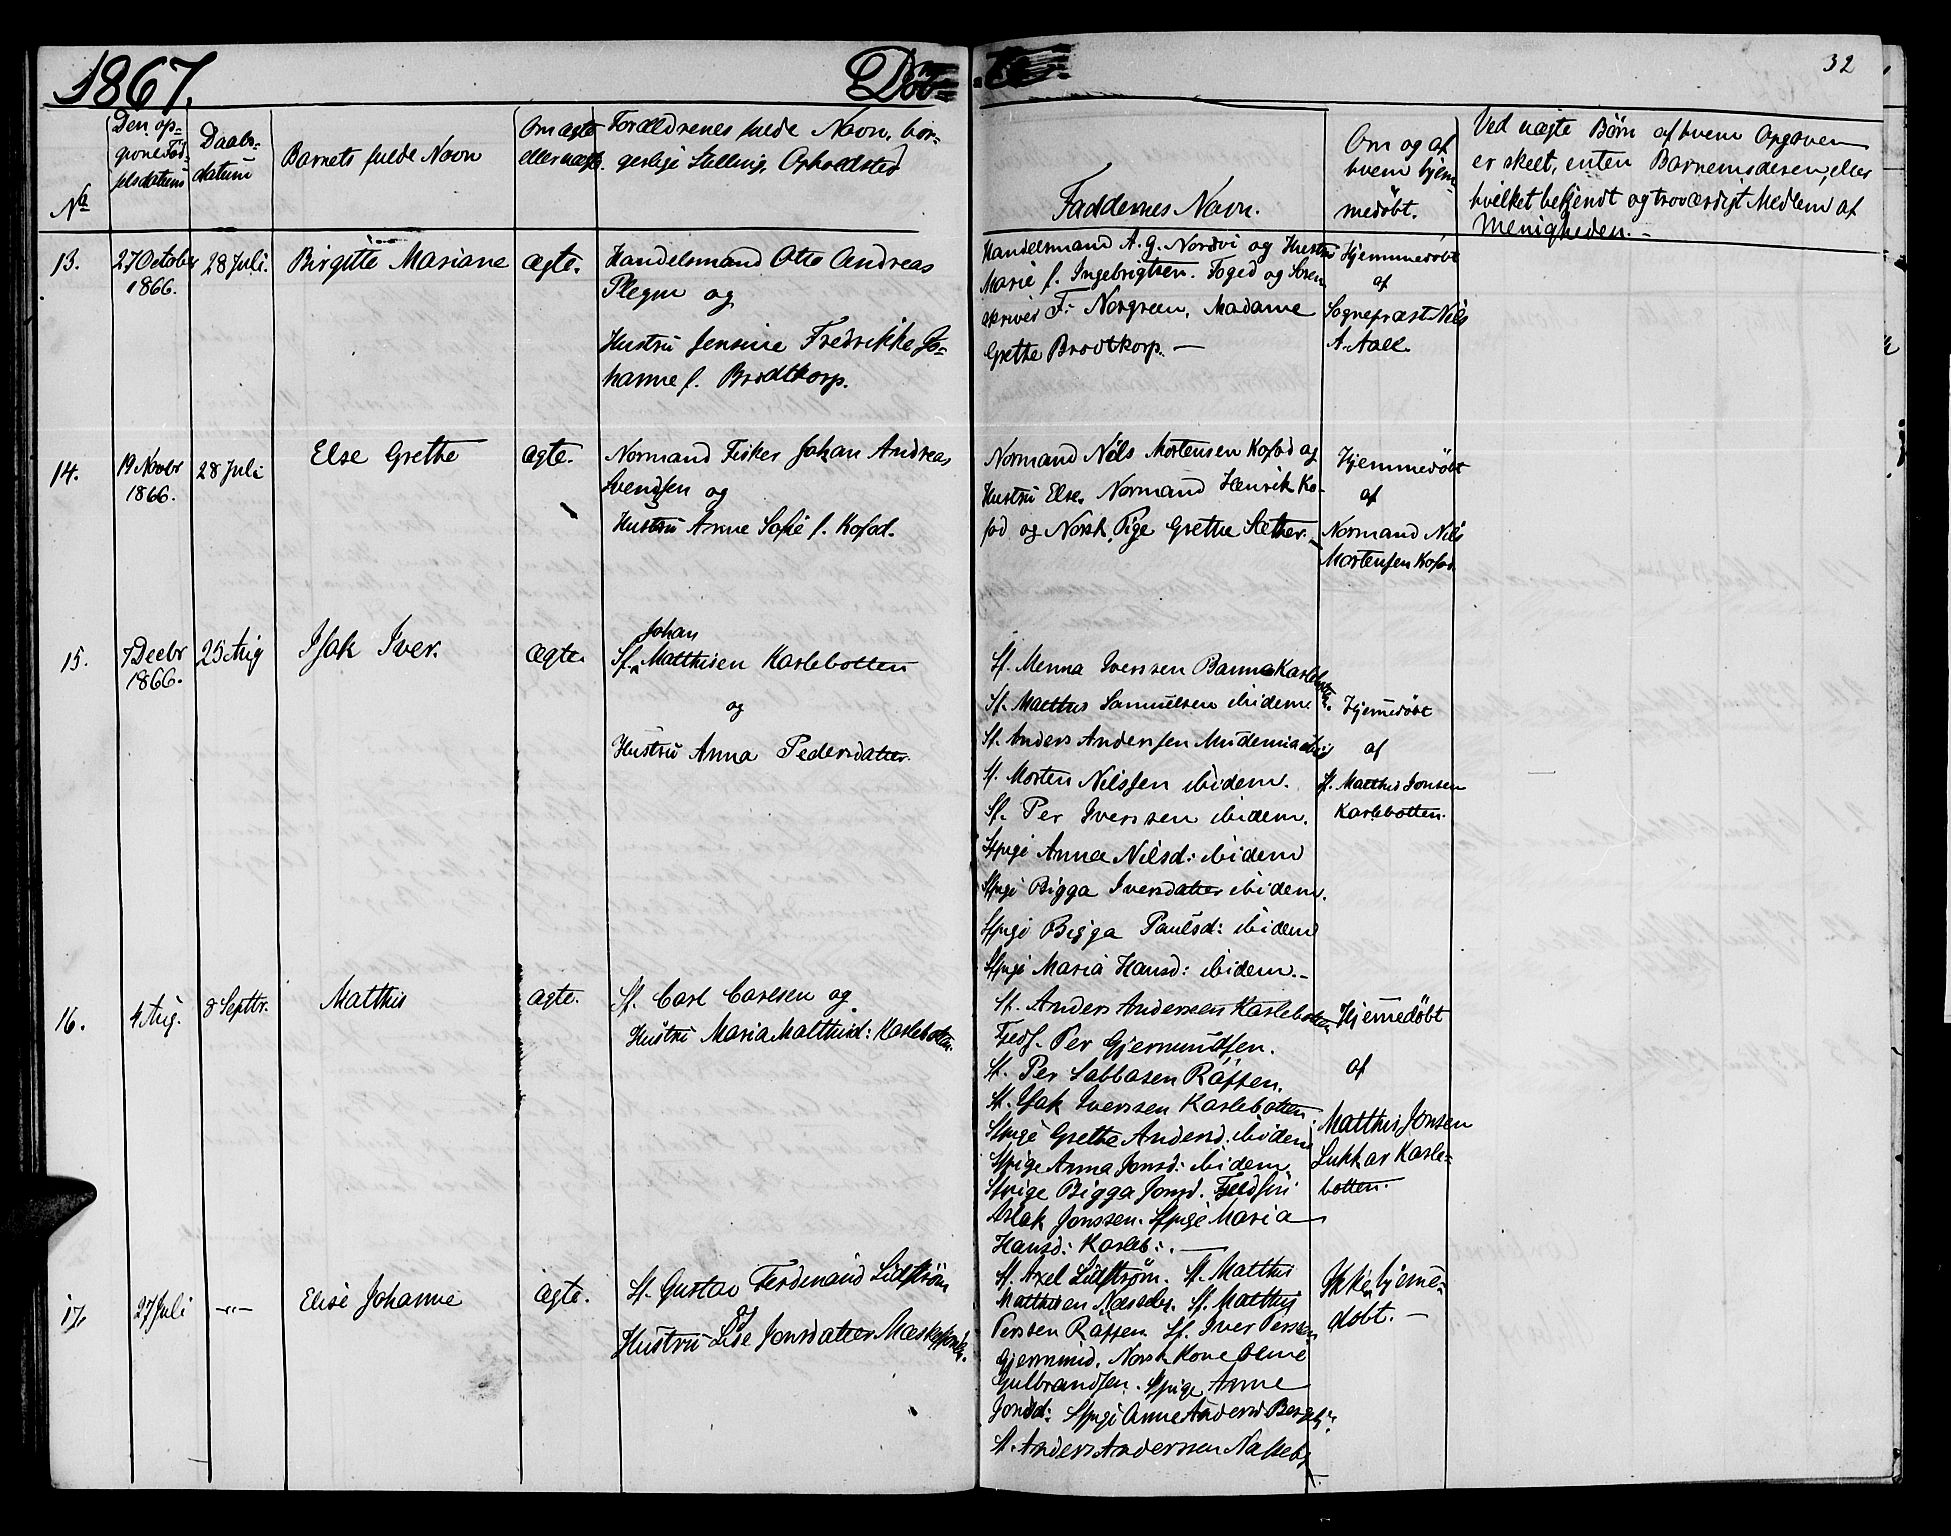 1867.
Døbte.
32
No
Den op-
givne Fød-
selsdatum
Daabs-
datum
Barnets fulde Navn
Om ægte
eller uægte.
Forældrenes fulde Navn, bor-
gerlige Stilling, Opholdsted
Faddernes Navn.
Om og af
hvem hjem-
medøbt.
Ved uægte Børn af hvem Opgaven
er skeet, enten Barnemoderen, eller
hvilket bekjendt og troværdigt Medlem af
Menigheden.
13.
27 October
1866.
28 Juli.
Birgitte Mariane
ægte.
Handelsmand Otto Andreas
Plegm og
Hustru Jensine Fredrikke Jo-
hanne f. Brodtkorp.
Handelsmand A. G. Nordvi og Hustru
Marie f. Ingebrigtsen. Foged og Soren-
skriver F. Norgreen, Madame
Grethe Brodtkorp. —
Hjemmedøbt
af
Sognepræst Nils
A. Aall.
14.
19 Novbr
1866.
28 Juli
Else Grethe
ægte.
Normand Fisker Johan Andreas
Svendsen og
Hustru Anne Sofie f. Kofod.
Normand Nils Mortensen Kofod og
Hustru Else. Normand Henrik Ko-
fod og Norsk Pige Grethe Sæther.
Hjemmedøbt
af
Normand Nils
Mortensen Kofod
15.
7 Decbr
1866.
25 Aug
Isak Iver.
ægte
Johan
Sf. Matthisen Karlebotten
og
Hustru Anna Pedersdatter.
Sf. Menna Iverssen Banna Karlebotten.
Sf. Matthis Samuelsen ibidem
Sf. Anders Anderssen Mudenia ibid
Sf. Morten Nilssen ibidem.
Sf. Per Iverssen ibidem.
Sfpige Anna Nilsd: ibidem
Sfpige Bigga Iversdatter ibidem.
Sfpige Bigga Paulsd: ibidem
Sfpige Maria Hansd: ibidem.-
Hjemmedøbt
af
Sf. Matthis Jonsen
Karlebotten.
16.
4 Aug.
8 Septbr.
Matthis
ægte.
Sf. Carl Carlsen og
Hustru Maria Matthisd: Karlebotten.
Sf. Anders Anderssen Karlebotten
Fjedf. Per Gjermundsen.
Sf. Per Sabbasen Ráften.
Sf. Isak Iverssen Karlebotten
Sfpige Grethe Andersd. ibidem
Sfpige Anna Jonsd: ibidem.
Sfpige Bigga Jonsd. Fjeldfin
Aslak Jonssen. Sfpige Maria
Hansd: Karleb:. —
Hjemmedøbt
af
Matthis Jonsen
Lukkar Karle-
botten.
17.
27 Juli
-"-
Elise Johanne
ægte.
Sf. Gustav Ferdinand Lidstrøm
og
Hustru Lise Jonsdatter
Sf. Axel Lidstrøm. Sf. Matthis
Matthisen Næsseby. Sf. Matthis
Perssen Ráften. Sf. Iver Perssen
Gjermund. Norsk Kone
Gulbrandsen. Sfpige Anne
Jonsd: Sfpige Anne Andersd Bergeby.
Sf. Anders Anderssen Næsseby
Ikke hjemme-
døbt. —